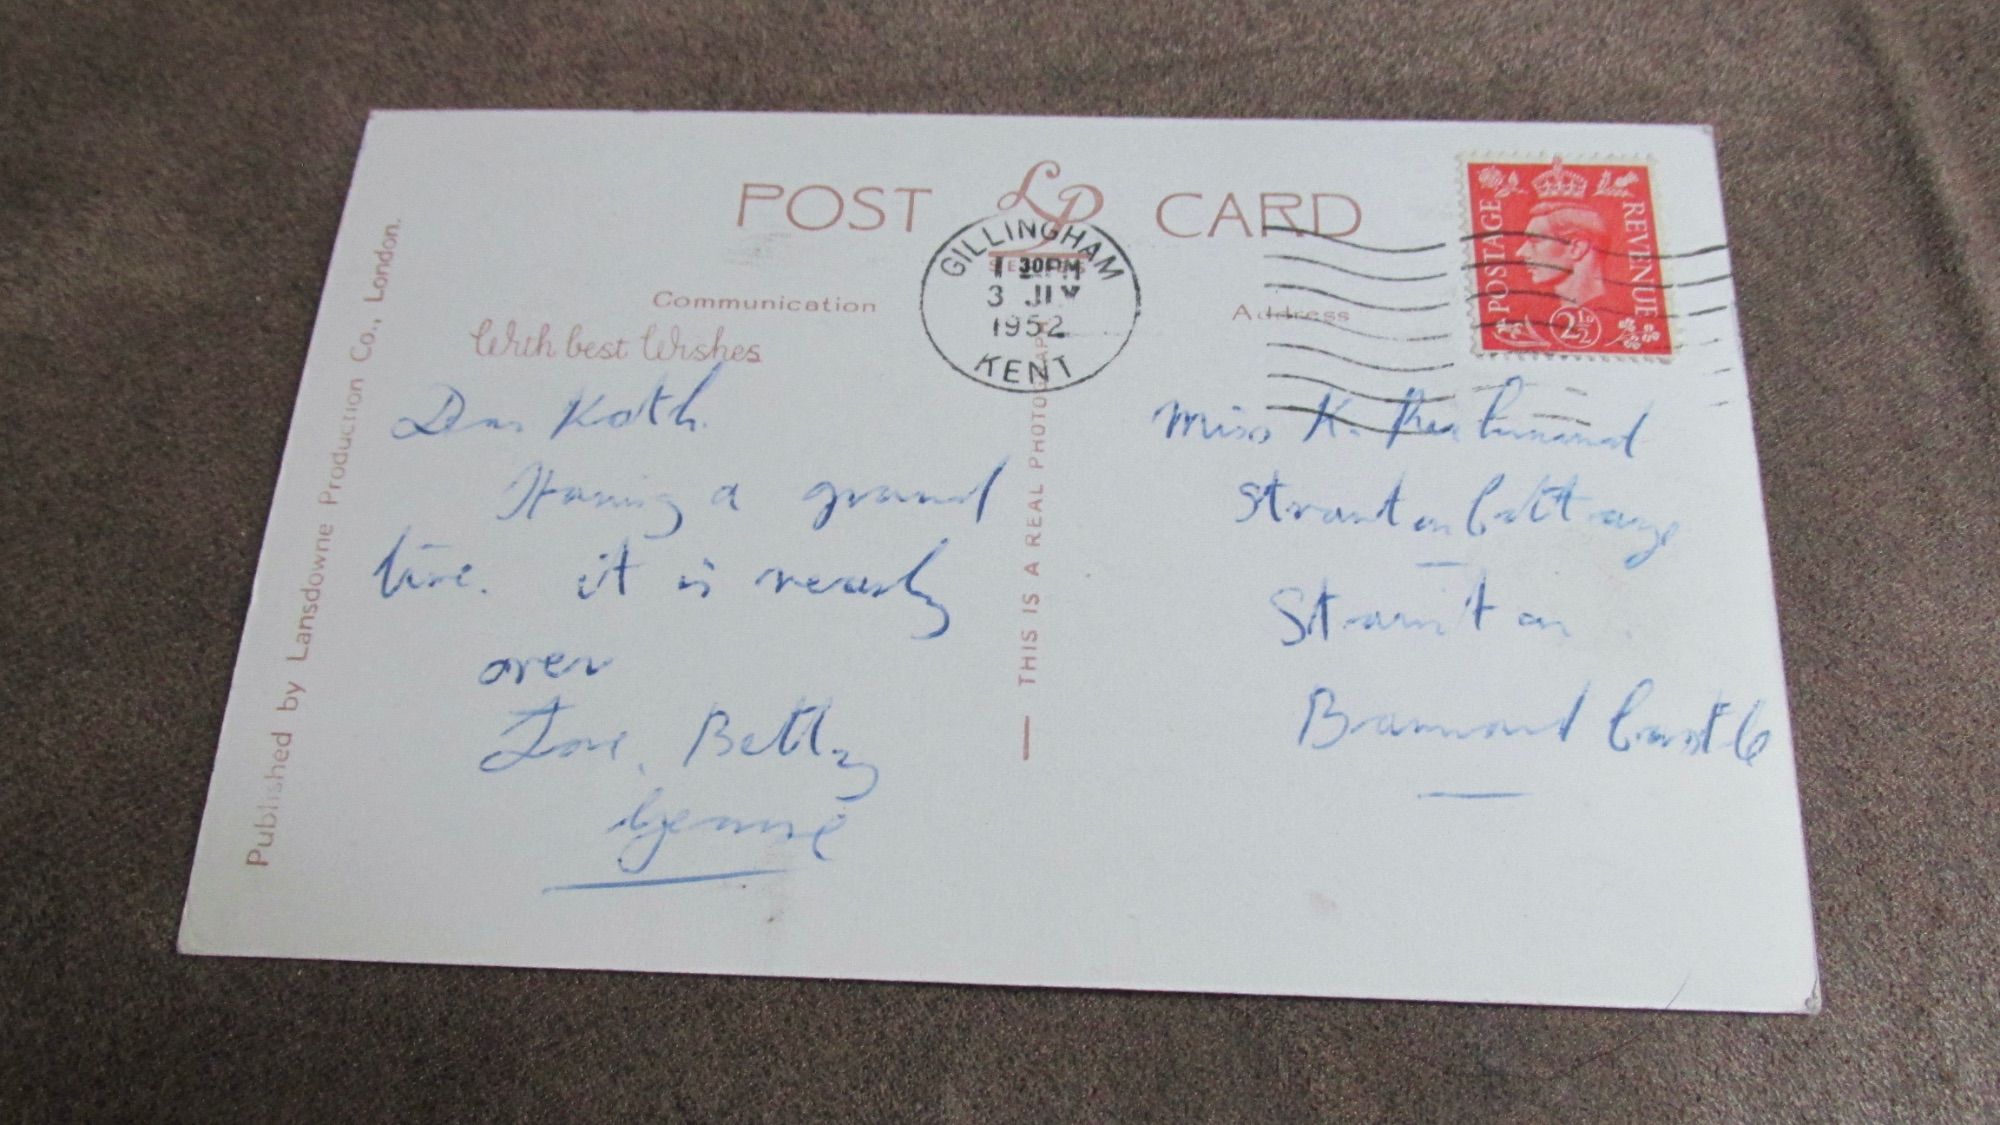 POST CARD
LP
SERIES
GILLINGHAM
1 30PM
3 JLY
1952
KENT
POSTAGE
REVENUE
2½D
Communication
Address
With best Wishes
Published by Lansdowne Production Co., London.
THIS IS A REAL PHOTOGRAPH
Dear Kath.
Having a grand
time. it is nearly
over
Love, Betty
Miss K.
Cottage
Stainton
Barnard Castle